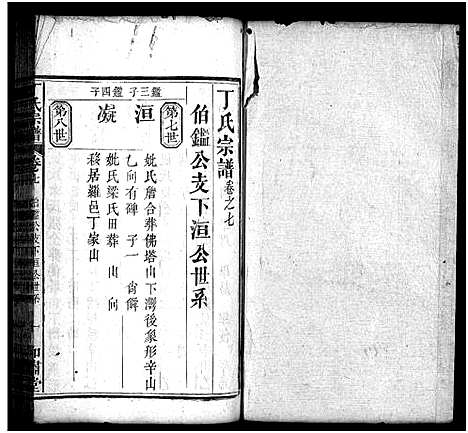 丁氏宗譜 卷之七
伯鑑公支下洹公世系
第七世
洹 鑑三子
妣氏詹合葬佛塔山下灣後象形辛山
乙向有碑 子一
凝 鑑四子
妣氏梁氏田葬 山 向
移居羅邑丁家山
第八世
丁氏宗譜 卷之七 伯鑑公支下洹公世系 一